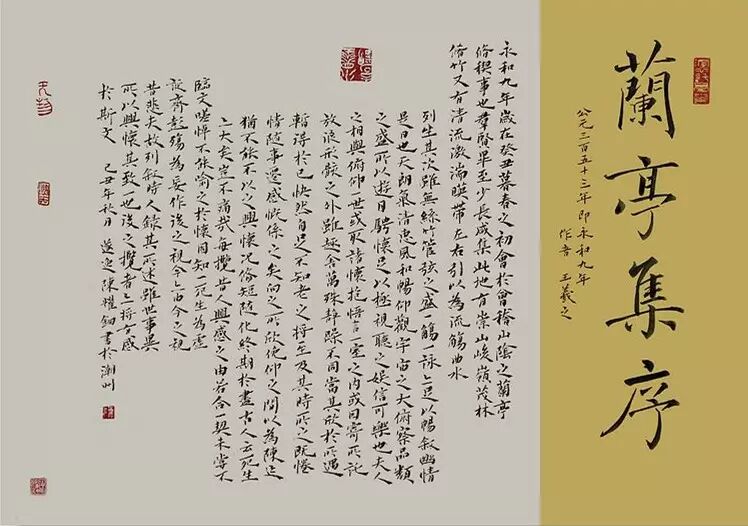 蘭亭集序
公元三百五十三年即永和九年
作者 王羲之
永和九年歲在癸丑暮春之初會於會稽山陰之蘭亭
脩稧事也羣賢畢至少長咸集此地有崇山峻嶺茂林
脩竹又有清流激湍暎帶左右引以為流觴曲水
列坐其次雖無絲竹管弦之盛一觴一詠亦足以暢敘幽情
是日也天朗氣清惠風和暢仰觀宇宙之大俯察品類
之盛所以遊目騁懷足以極視聽之娛信可樂也夫人
之相與俯仰一世或取諸懷抱悟言一室之內或因寄所託
放浪形骸之外雖趣舍萬殊靜躁不同當其欣於所遇
暫得於己快然自足不知老之將至及其所之既惓
情隨事遷感慨係之矣向之所欣俛仰之間以為陳迹
猶不能不以之興懷況脩短隨化終期於盡古人云死生
亦大矣豈不痛哉每攬昔人興感之由若合一契未嘗不
臨文嗟悼不能喻之於懷固知一死生為虛
誕齊彭殤為妄作後之視今亦由今之視
昔悲夫故列敘時人錄其所述雖世事異
所以興懷其致一也後之攬者亦將有感
於斯文 己丑年秋月 陳耀書於潮州